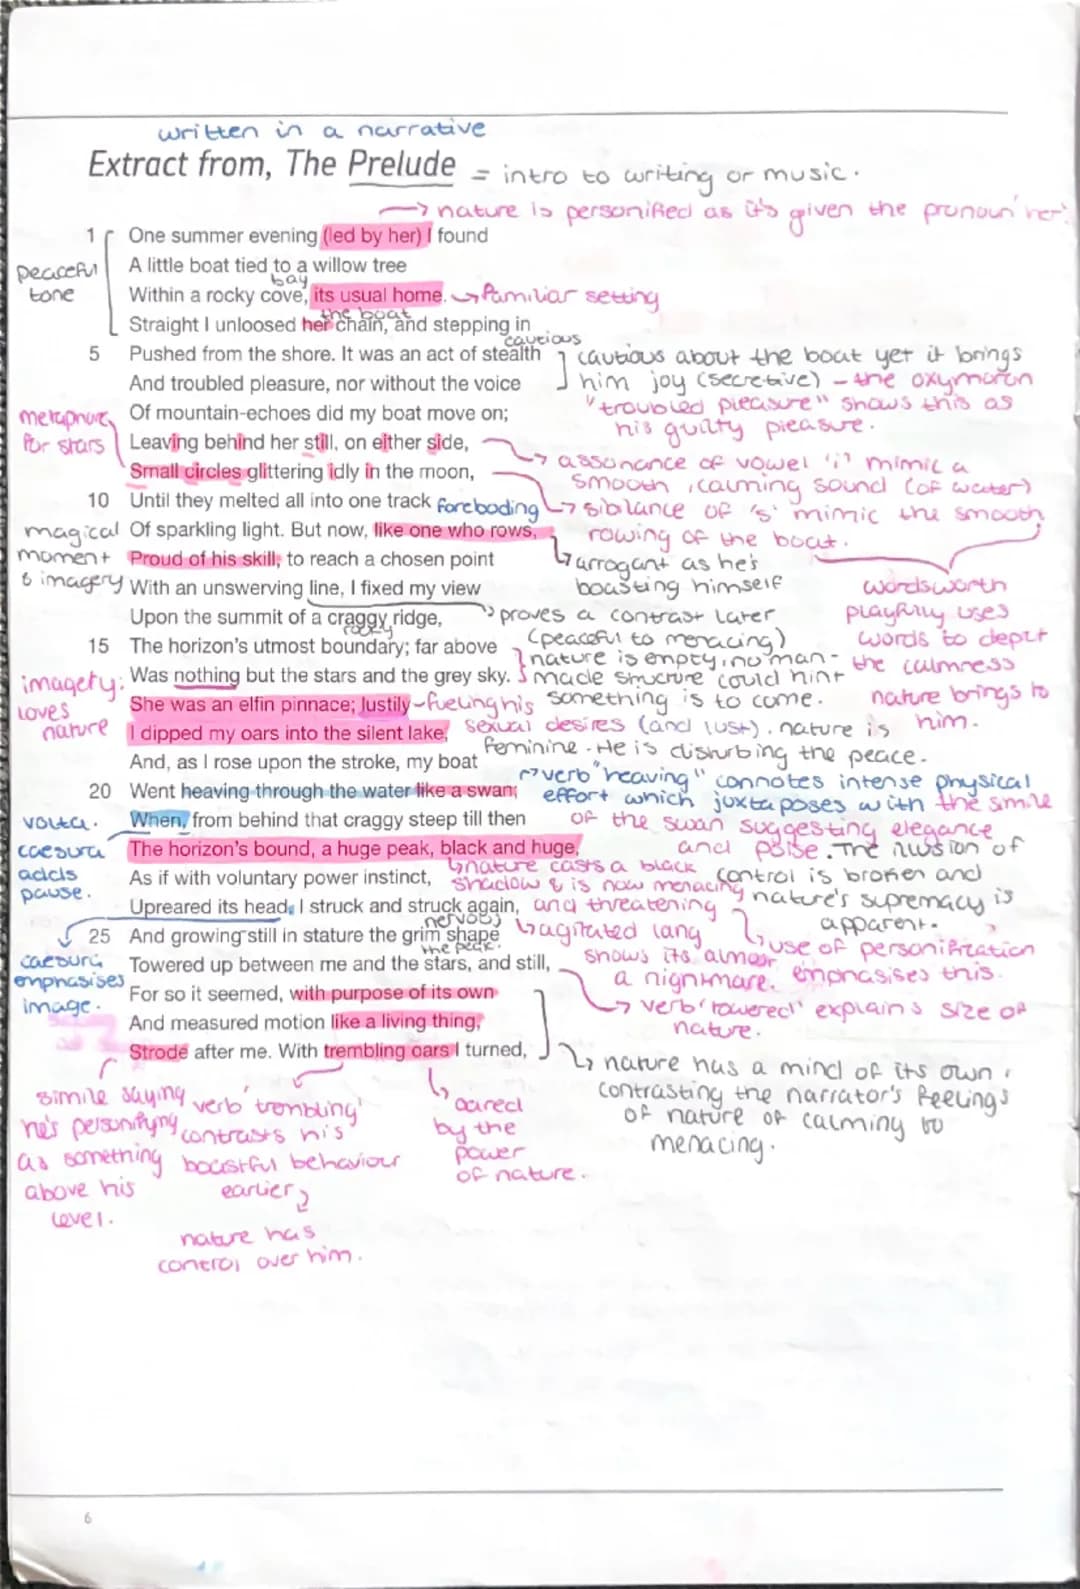 written in a narrative
Extract from, The Prelude = intro to writing or music.
→ nature is personified as it's given the pronoun 'her'.
1 One summer evening (led by her) I found
peaceful tone
A little boat tied to a willow tree
bay
Within a rocky cove, its usual home. → familiar setting
the boat
Straight I unloosed her chain, and stepping in
cautious
5 Pushed from the shore. It was an act of stealth
And troubled pleasure, nor without the voice
cautious about the boat yet it brings
him joy (secretive) - the oxymoron
"troubled pleasure" shows this as
his guilty pleasure.
Of mountain-echoes did my boat move on;
metaphor for stars
Leaving behind her still, on either side,
Small circles glittering idly in the moon,
→ assonance of vowel 'i' mimic a
smooth, calming sound (of water)
10 Until they melted all into one track
foreboding
→ sibilance of 's' mimic the smooth
rowing of the boat.
magical moment & imagery
Of sparkling light. But now, like one who rows,
Proud of his skill, to reach a chosen point
arrogant as he's
boasting himself
wordsworth
playfully uses
words to depict
the calmness
nature brings to
him.
With an unswerving line, I fixed my view
Upon the summit of a craggy ridge,
rocky
proves a contrast later
(peaceful to menacing)
15 The horizon's utmost boundary; far above
Was nothing but the stars and the grey sky.
nature is empty, no man-
made structure could hint
something is to come.
imagery: loves nature
She was an elfin pinnace; lustily - fueling his
sexual desires (and lust). nature is
feminine. He is disturbing the peace.
I dipped my oars into the silent lake,
And, as I rose upon the stroke, my boat
20 Went heaving through the water like a swan;
→ verb "heaving" connotes intense physical
effort which juxtaposes with the smile
of the swan suggesting elegance
and poise. The illusion of
control is broken and
nature's supremacy is
apparent.
volta.
When, from behind that craggy steep till then
caesura adds pause.
The horizon's bound, a huge peak, black and huge,
nature casts a black
shadow & is now menacing
and threatening
As if with voluntary power instinct,
Upreared its head. I struck and struck again,
nervous
agitated lang
shows its almost
a nightmare.
use of personification
emphasises this.
25 And growing still in stature the grim shape
the peak.
caesura emphasises image.
Towered up between me and the stars, and still,
→ verb 'towered' explains size of
nature.
For so it seemed, with purpose of its own
And measured motion like a living thing,
Strode after me. With trembling oars I turned,
nature has a mind of its own,
contrasting the narrator's feelings
of nature of calming to
menacing.
simile saying
he's personifying
as something
above his
level.
verb 'trembling'
contrasts his
boastful behaviour
earlier
nature has
control over him.
scared
by the
power
of nature.
6